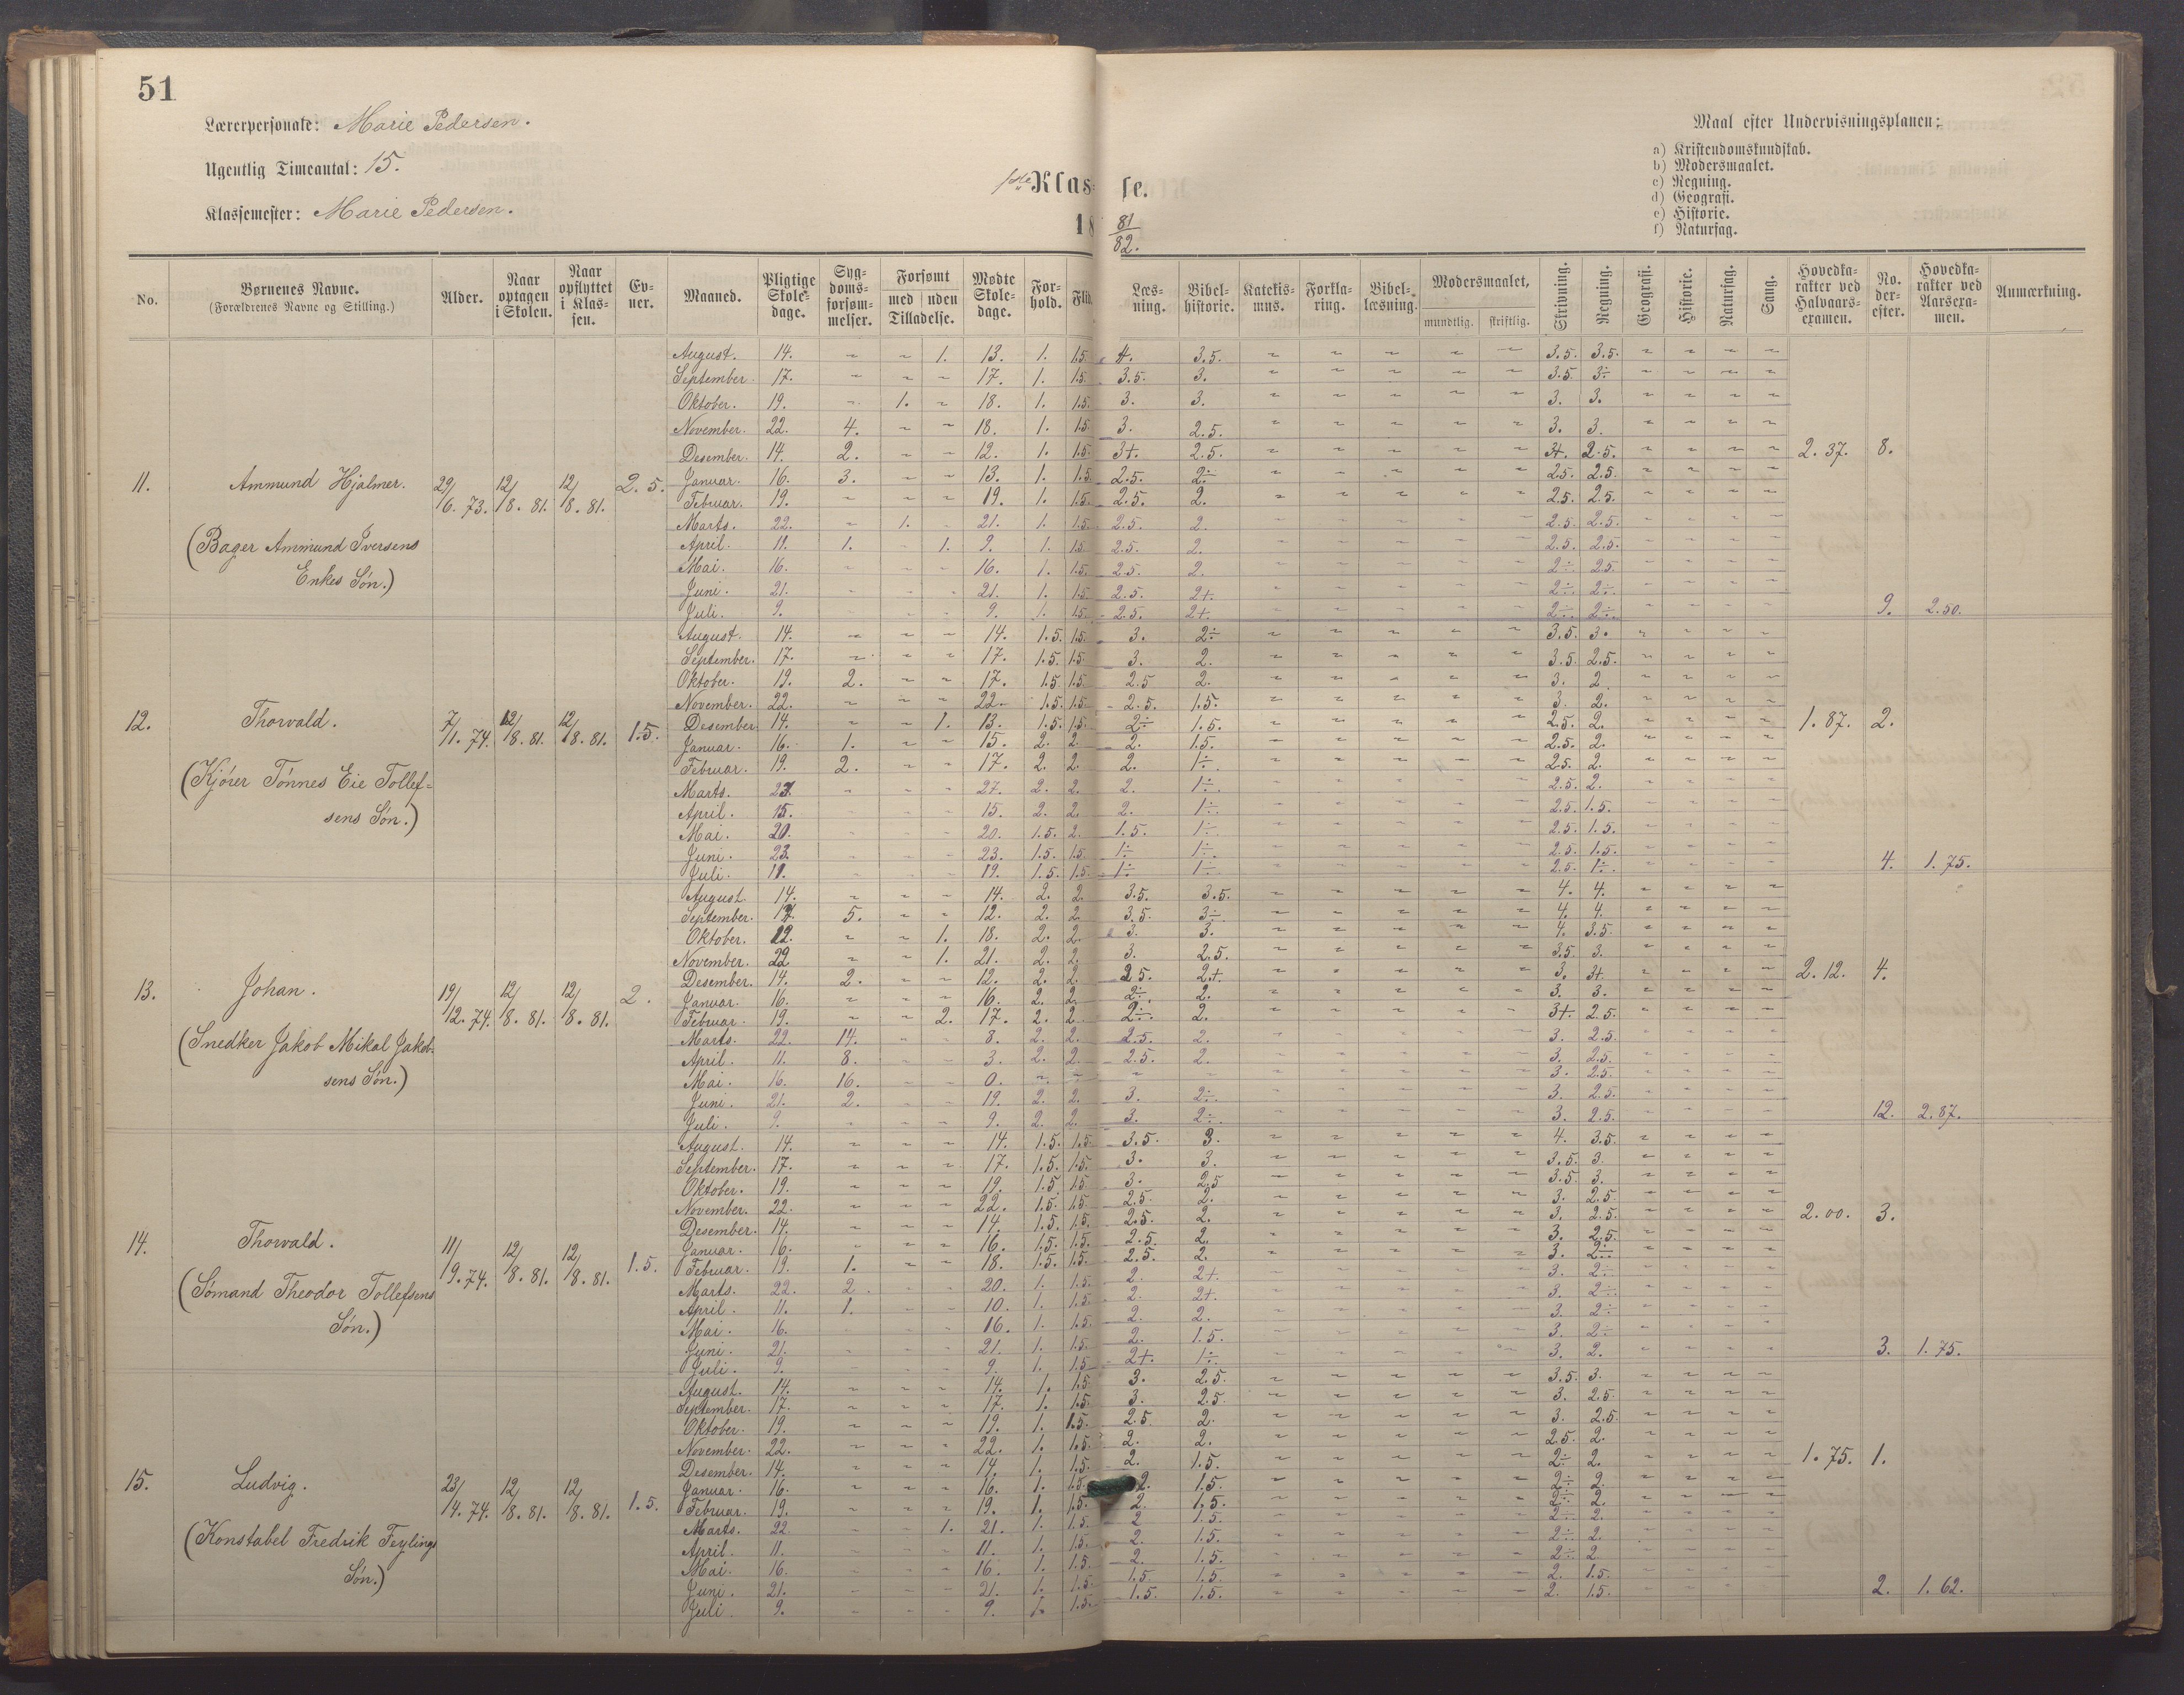 51
Lærerpersonale: Marie Pedersen.
Ugentlig Timeantal: 15.
Klassemester: Marie Pedersen.
1ste Klasse.
1881/82.
Maal efter Undervisningsplanen:
a) Kristendomskundskab.
b) Modersmaalet.
c) Regning.
d) Geografi.
e) Historie.
f) Naturfag.
No. Børnenes Navne. (Forældrenes Navne og Stilling.) Alder. Naar optagen i Skolen. Naar opflyttet i Klassen. Evner. Maaned. Pligtige Skoledage. Sygdomsforsømmelser. Forsømt med uden Tilladelse. Mødte Skoledage. Forhold. Flid. Læsning. Bibelhistorie. Katekismus. Forklaring. Bibellæsning. Modersmaalet, mundtlig. skriftlig. Skrivning. Regning. Geografi. Historie. Naturfag. Sang. Hovedkarakter ved Halvaarsexamen. No. derefter. Hovedkarakter ved Aarsexamen. Anmærkning.
11. Ammund Hjalmer. 29/6. 73. 12/8. 81. 12/8. 81. 2.5.
(Bager Ammund Iversens
Enkes Søn.)
August. 14. " " 1. 13. 1. 1.5. 4. 3.5. " " " " " 3.5. 3.5. " " " "
September. 17. " " " 17. 1. 1.5. 3.5. 3. " " " " " 3.5. 3÷ " " " "
Oktober. 19. " 1. " 18. 1. 1.5. 3. 3. " " " " " 3. 3. " " " "
November. 22. 4. " " 18. 1. 1.5. 3. 2.5. " " " " " 3. 3. " " " "
Desember. 14. 2. " " 12. 1. 1.5. 3+. 2.5. " " " " " 3+. 2.5. " " " " 2.37. 8.
Januar. 16. 3. " " 13. 1. 1.5. 2.5. 2÷ " " " " " 2.5. 2.5. " " " "
Februar. 19. " " " 19. 1. 1.5. 2.5. 2. " " " " " 2.5. 2.5. " " " "
Marts. 22. " 1. " 21. 1. 1.5. 2.5. 2. " " " " " 2.5. 2.5. " " " "
April. 11. 1. " 1. 9. 1. 1.5. 2.5. 2. " " " " " 2.5. 2.5. " " " "
Mai. 16. " " " 16. 1. 1.5. 2.5. 2. " " " " " 2÷. 2.5. " " " "
Juni. 21. " " " 21. 1. 1.5. 2.5. 2+. " " " " " 2÷. 2÷. " " " "
Juli. 9. " " " 9. 1. 1.5. 2.5. 2+. " " " " " 2÷. 2÷. " " " " 9. 2.50.
12. Thorvald. 7/1. 74. 12/8. 81. 12/8. 81. 1.5.
(Kjører Tønnes Eie Tollef-
sens Søn.)
August. 14. " " " 14. 1.5. 1.5. 3. 2÷ " " " " " 3.5. 3. " " " "
September. 17. " " " 17. 1.5. 1.5. 3. 2. " " " " " 3.5. 2.5. " " " "
Oktober. 19. 2. " " 17. 1.5. 1.5. 2.5 2. " " " " " 3. 2 " " " "
November. 22. " " " 22. 1.5. 1.5. 2.5. 1.5. " " " " " 3. 2. " " " "
Desember. 14. " " 1. 13. 1.5. 1.5. 2÷ 1.5. " " " " " 2.5. 2. " " " " 1.87. 2.
Januar. 16. 1. " " 15. 2. 2. 2. 1.5. " " " " " 2.5. 2. " " " "
Februar. 19. 2. " " 17. 2. 2. 2. 1÷. " " " " " 2.5. 2. " " " "
Marts. 27. " " " 27. 2. 2. 2. 1÷. " " " " " 2.5. 2. " " " "
April. 15. " " " 15. 2. 2. 2. 1÷. " " " " " 2.5. 1.5. " " " "
Mai. 20. " " " 20. 1.5. 2. 1.5. 1÷. " " " " " 2.5. 1.5. " " " "
Juni. 23. " " " 23. 1.5. 1.5 1÷. 1÷. " " " " " 2.5. 1.5. " " " "
Juli. " " " 19. 1.5. 1.5. 1÷. 1÷. " " " " " 2.5. 1÷. " " " " 4. 1.75.
13. Johan. 19/12. 74. 12/8. 81. 12/8. 81. 2.
(Snedker Jakob Mikal Jakob-
sens Søn.)
August. 14. " " " 14. 2. 2. 3.5. 3.5. " " " " " 4. 4. " " " "
September. 17. 5. " " 12. 2. 2. 3.5. 3÷ " " " " " 4. 4. " " " "
Oktober. " " 1. 18. 2. 2. 3. 3. " " " " " 4. 3.5. " " " "
November. 22 " " 1. 21. 2. 2. 3. 2.5. " " " " " 3.5. 3. " " " "
Desember. 14. 2. " " 12. 2. 2. 2.5. 2+. " " " " " 3. 3+. " " " " 2.12. 4.
Januar. 16. " " " 16. 2. 2. 2÷. 2. " " " " " 3. 3. " " " "
Februar. 19. " " 2. 17. 2. 2. 2÷. 2. " " " " " 3+. 2.5. " " " "
Marts. 22. 14. " " 8. 2. 2. 2.5. 2. " " " " " 3. 2.5. " " " "
April. 11. 8. " " 3. 2. 2. 2.5. 2. " " " " " 3. 2.5. " " " "
Mai. 16. 16. " " 0. " " " " " " " " " 3. 2.5. " " " "
Juni. 21. 2. " " 19. 2. 2. 3. 2÷. " " " " " 3. 2.5. " " " "
Juli. 9. " " " 9. 2. 2. 3. 2÷. " " " " " 3. 2.5. " " " " 12. 2.87.
14. Thorvald. 11/9. 74. 12/8. 81. 12/8. 81. 1.5.
(Sømand Theodor Tollefsens
Søn.)
August. 14. " " " 14. 1.5. 1.5. 3.5. 3. " " " " " 4. 3.5. " " " "
September. 17. " " " 17. 1.5. 1.5. 3. 3. " " " " " 3.5. 3. " " " "
Oktober. 19. " " " 19. 1.5. 1.5. 3. 2.5 " " " " " 3.5. 3. " " " "
November. 22. " " " 22. 1.5. 1.5. 2.5. 2. " " " " " 3. 2.5. " " " "
Desember. 14. " " " 14. 1.5. 1.5. 2.5. 2. " " " " " 3. 2.5. " " " " 2.00. 3.
Januar. 16. " " " 16. 1.5. 1.5. 2.5. 2. " " " " " 3. 2.5. " " " "
Februar. 19. 1. " " 18. 1.5. 1.5. 2.5. 2. " " " " " 3. 2÷. " " " "
Marts. 22. 2. " " 20. 1. 1.5. 2. 2+. " " " " " 3. 2÷. " " " "
April. 11. 1. " " 10. 1. 1.5. 2. 2+. " " " " " 3. 2÷. " " " "
Mai. 16. " " " 16. 1. 1.5. 2. 2. " " " " " 3. 2÷ " " " "
Juni. 21. " " " 21. 1. 1.5. 2. 1.5. " " " " " 3. 2÷ " " " "
Juli. 9. " " " 9. 1. 1.5. 2+. 1÷. " " " " " 3. 2. " " " " 3. 1.75.
15. Ludvig. 23/4. 74. 12/8. 81. 12/8. 81. 1.5.
(Konstabel Fredrik Feylings
Søn.)
August. 14. " " " 14. 1. 1.5. 3. 2.5. " " " " " 3.5. 3. " " " "
September. 17. " " " 17. 1. 1.5. 3. 2.5. " " " " " 3. 2.5. " " " "
Oktober. 19. " " " 19. 1. 1.5. 2.5. 2. " " " " " 3. 2.5. " " " "
November. 22. " " " 22. 1. 1.5. 2. 2. " " " " " 2.5. 2. " " " "
Desember. 14. " " " 14. 1. 1.5. 2. 1.5. " " " " " 2÷ 2. " " " " 1.75. 1.
Januar. 16. " " " 16. 1. 1.5. 2. 1.5. " " " " " 2÷ 2. " " " "
Februar. 19. " " " 19. 1. 1.5. 2. 1.5. " " " " " 2÷ 2. " " " "
Marts. 22 " " 1. 21. 1. 1.5. 2 1.5. " " " " " 2÷ 2. " " " "
April. 11. " " " 11. 1. 1.5. 2. 1.5. " " " " " 2÷ 2. " " " "
Mai. 16. " " " 16. 1. 1.5. 2. 1.5. " " " " " 2÷ 2 " " " "
Juni. 21. " " " 21. 1. 1.5. 1.5. 1.5. " " " " " 2. 1.5. " " " "
Juli. 9. " " " 9. 1. 1.5. 1.5. 1.5. " " " " " 2. 1.5. " " " " 2. 1.62.